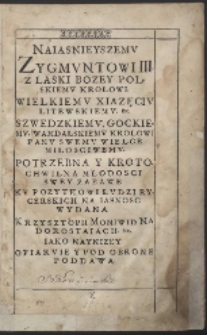 NAIASNIEYSZEMV
ZYGMVNTOWI III
Z LASKI BOZEY POL,
SKIEMV KROLOWI
WIELKIEMV XIAZĘCIV
LITEWSKIEMV. &c.
SZWEDZKIEMV, GOCKIE,
MV. WANDALSKIEMV KROLOWI
PANV SWEMV WIELCE
MIŁOSCIWEMV.
POTRZEBNA Y KROTO,
CHWILNA MŁODOSCI
SWEY ZABAWE
KV POZYTKOWI LVDZI RY,
CERSKICH NA IASNOSC
WYDANA
KRZYSZTOPH MONIWID NA
DOROSTAIACH. &c.
IAKO NAYNIZEY
OFIARVIE Y POD OBRONE
PODDAWA